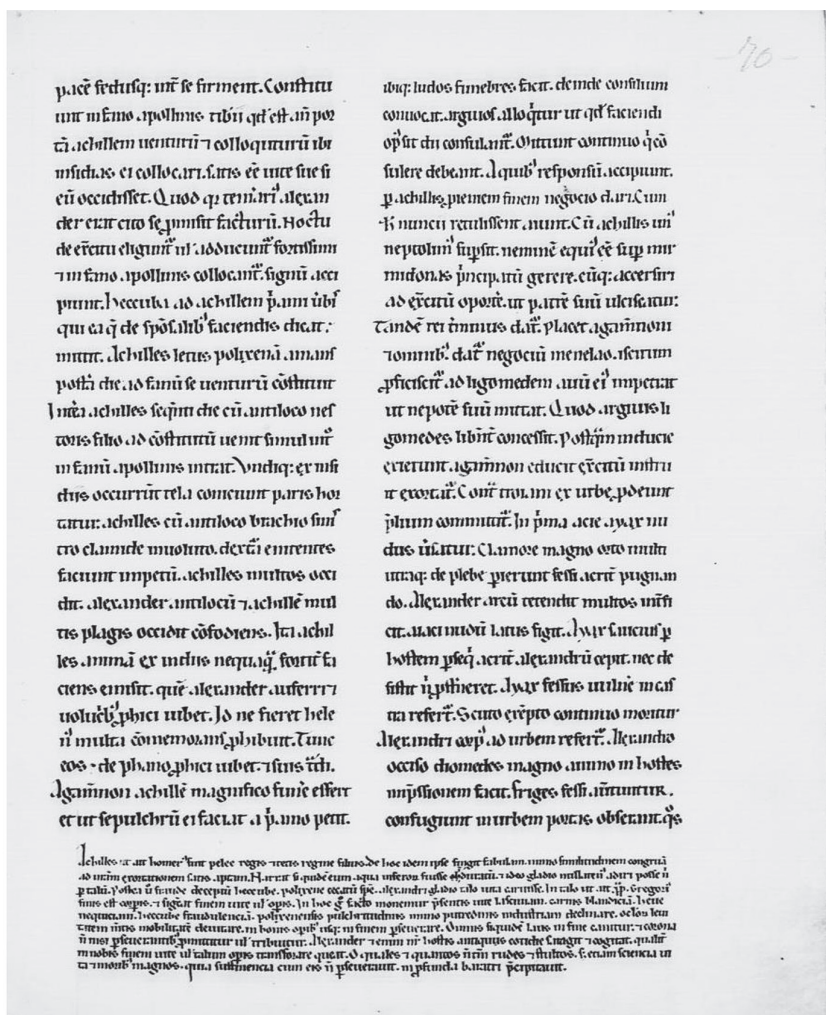 70
pacē fedusq: int̄ se firment. Constitu
unt in fano apollinis tibri qd̓ est an̄ por
tā achillem uenturū ⁊ colloquiturū ibi
insidias ei collocari. satis eē uite sue si
eū occidisset. Quod q; tem̄ari᾽ alexan
der erat cito se ꝓmisit facturū. Noctu
de ex̄citu eligunt᾽ ul᾽ adducunt᾽ fortissimi
⁊ in fano apollinis collocant᾽. signū acci
piunt. heccuba ad achillem p̓ami ūbis
qui ea q̄ de spōsalib᾽ faciendis dicat:
mittit. Achilles letus polixenā amans
post̄a die ad fanū se uenturū cōstituit
Int̄ea achilles seq̄nti die cū antiloco nes
toris filio ad cōstitutū uenit simul int᾽
in fanū apollinis intrat. Vndiq: ex insi
diis occurrūt tela coniciunt paris hor
tatur. achilles cū antiloco brachio sinis
tro clamide inuoluto. dext̄a ensem tenentes
faciunt impetū. achilles multos occi
dit. alexander antilocū ⁊ achillē mul
tis plagis occidit cōfodiens. Ita achil
les animā ex insidiis nequaq̄. fortit̄ fa
ciens emisit. quē alexander auiferri ⁊
uolucrib᾽ ꝓhici iubet. Id ne fieret hele
n᾽ multa cōmemorans ꝓhibuit. Tunc
eos de phano ꝓhici iubet. ⁊ suis t̄di.
Agam̄non achillē magnifico fun̄e effert
et ut sepulchrū ei faciat a p̓amo petit.
ibiq: ludos funebres facit. deinde consilium
conuocat. arguios alloq̄tur ut qd̓ faciendi
op᾽ sit diu consulant᾽. Oriunt᾽ continuo q̓ cō
sulere debeant. A quib᾽ responsū accipiunt.
ꝑ achillis ꝓgeniem finem negocio dari. Cum
h᾽ nuncii retulissent aiunt. Cū achillis uni᾽
neptolim᾽ suꝑsit. neminē equi᾽ eē suꝑ mir
midonas p̓ncipatū gerere. eūq: accersiri
ad ex̄citū oportē. ut patrē suū ulciscatur:
Tandē rei t̄minus dat᾽. placet agam̄noni
⁊ omnib᾽. dat᾽ negociū menelao. iscitum
ꝓficiscit᾽ ad ligomedem auū ei᾽ impetrat
ut nepotē suū mittat. Quod arguis li
gomedes libnt̄ concessit. Postq̄m inducie
exierunt. agam̄non educit ex̄citū instru
it exortat᾽. Cont᾽ troiani ex urbe ꝓdeunt
p̄lium committit᾽. In p̓ma acie ayax nu
dus ūsatur. Clamore magno orto multi
utriaq: de plebe ꝑierunt fessi acrit̄ pugnan
do. Alexander arcū tetendit multos int̄fi
cit. aiaci nudū latus figit. Ayax saucius ꝑ
hostem ꝑseq᾽ acrit̄ alexandrū cepit. nec de
sistit n̓ pstineret. Ayax fessus uulnē in cas
tra refert᾽. Scuto ex̄epto continuo moritur
Alexandri corp᾽ ad urbem refert᾽. Alexandro
occiso diomedes magno animo in hostes
imp̄ssionem facit. friges fessi aūtuntur.
confugiunt in urbem portas obserant. q̄s
Achilles ut ait homer᾽ fuit pelee regis ⁊ tetis regine filius. De hoc idem ipse fingit fabulam. immo similitudinem congruā
ad uitam exortationem satis aptam.
fuisse
gladio
p̄ talū. Postea ū fraude deceptū heccube. polixene cecatū spe. alexandri gladio talo uita caruisse. In talo ut ait. Gregori᾽
finis est corpis. ⁊ sigt̄ finem uite ul᾽ opis. In hoc g᾽ facto monemur p̄sentis uite lasciuiam. carnis blandicia. heue
nequiciam. heccube fraudulencia. polixenensis pulchritudinis immo putredinis industriam declinare.
tatem mentis mobilitatē deuitare. in bonis opib᾽ usq: in finem ꝑseuerare. Omnis siquidē laus in fine canitur. ⁊ corona
n̄ nisi ꝑseuerantib᾽ ꝓmittitur ul᾽ tribuitur. Alexander ⁊ enim n̄r hostis antiquus cotidie satagit ⁊ cogitat. qualit̄
in nobis finem uite ul᾽ talum opis transforare queat. O quales ⁊ quantos
ta ⁊ morib᾽ magnos. quia sustinencia cum eis n̄ ꝑseuerauit. in ꝓfunda baratri p̄cipitauit.